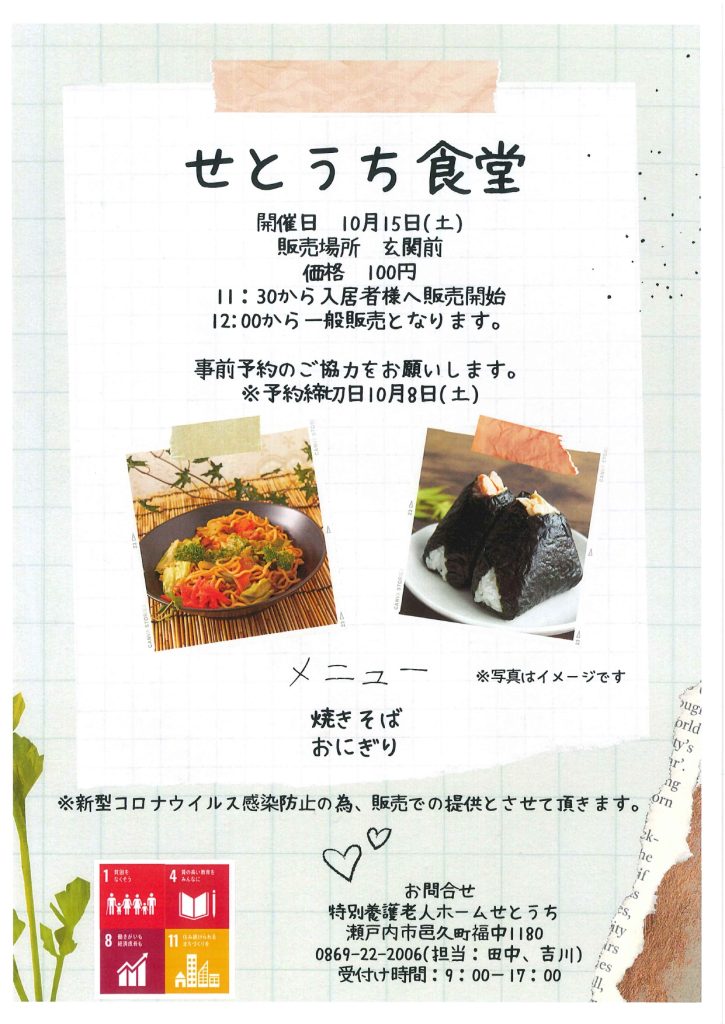 せとうち食堂
開催日　10月15日(土)
販売場所　玄関前
価格　100円
11：30から入居者様へ販売開始
12:00から一般販売となります。
事前予約のご協力をお願いします。
※予約締切日10月8日(土)
メニュー
※写真はイメージです
焼きそば
おにぎり
※新型コロナウイルス感染防止の為、販売での提供とさせて頂きます。
1 貧困をなくそう
4 質の高い教育をみんなに
8 働きがいも経済成長も
11 住み続けられるまちづくりを
お問合せ
特別養護老人ホームせとうち
瀬戸内市邑久町福中1180
0869-22-2006(担当：田中、吉川)
受付け時間：9：00－17：00